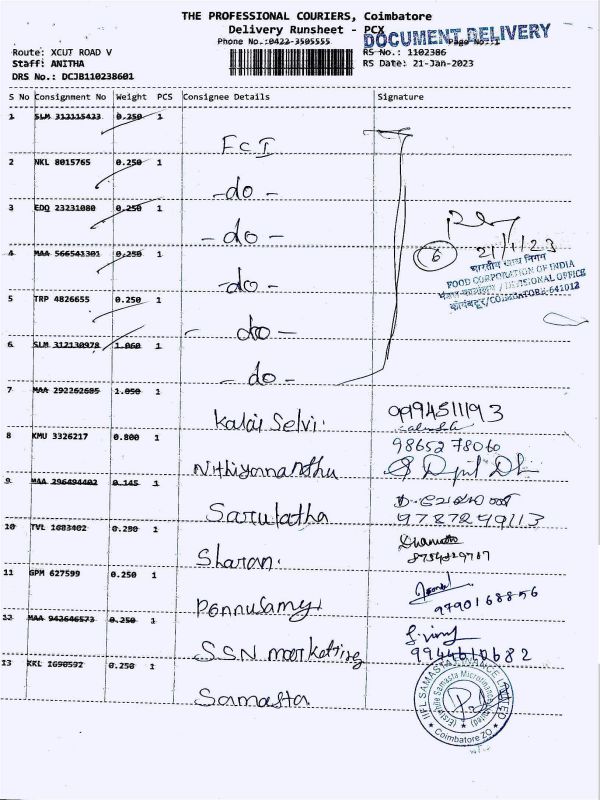 THE PROFESSIONAL COURIERS, Coimbatore
Delivery Runsheet - PCX
DOCUMENT DELIVERY
Phone No.:0422-3505555
Page No.:1
Route: XCUT ROAD V
RS No.: 1102386
Staff: ANITHA
RS Date: 21-Jan-2023
DRS No.: DCJB110238601
S No Consignment No Weight PCS Consignee Details Signature
1 SLM 312115423 0.250 1
FCI
2 NKL 8015765 0.250 1
-do-
3 EDQ 23231080 0.250 1
-do-
4 MAA 566541301 0.250 1
-do-
5 TRP 4826655 0.250 1
-do-
6 SLM 312130978 1.060 1
-do-
6
21/1/23
भारतीय खाद्य निगम
FOOD CORPORATION OF INDIA
मंडल कार्यालय / DIVISIONAL OFFICE
कोयंबटूर/COIMBATORE-641012
7 MAA 292262685 1.050 1
Kalai Selvi.
9994511193
8 KMU 3326217 0.800 1
Nithiyannandhu
9865278060
9 MAA 296494402 0.145 1
Sarulatha
9787299113
10 TVL 1683402 0.250 1
Sharan.
8754829717
11 GPM 627599 0.250 1
Ponnusamy
9790168856
12 MAA 942646573 0.250 1
SSN marketting
9944610682
13 KKL 1690592 0.250 1
Samasta
IIFL SAMASTA FINANCE LIMITED
(Erstwhile Samasta Microfinance Limited)
Coimbatore ZO